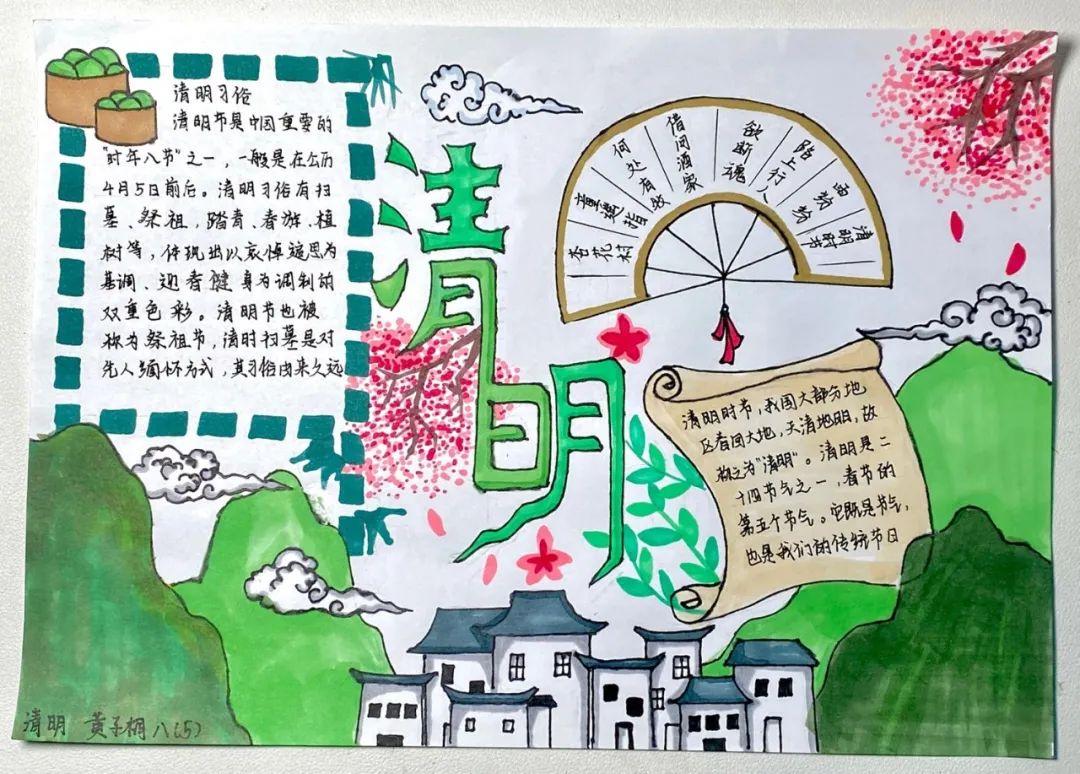 清明习俗
清明节是中国重要的
"时年八节"之一，一般是在公历
4月5日前后。清明习俗有扫
墓、祭祖，踏青、春游、植
树等，体现出以哀悼追思为
基调、迎春健身为调制的
双重色彩。清明节也被
称为祭祖节，清时扫墓是对
先人缅怀方式，其习俗由来久远
清明
清明时节
雨纷纷
陌上行人
欲断魂
借问酒家
何处有
牧童遥指
杏花村
清明时节，我国大部分地
区春回大地，天清地明，故
称之为"清明"。清明是二
十四节气之一，春节的
第五个节气。它既是节气，
也是我们的传统节日
清明 黄子桐 八(5)